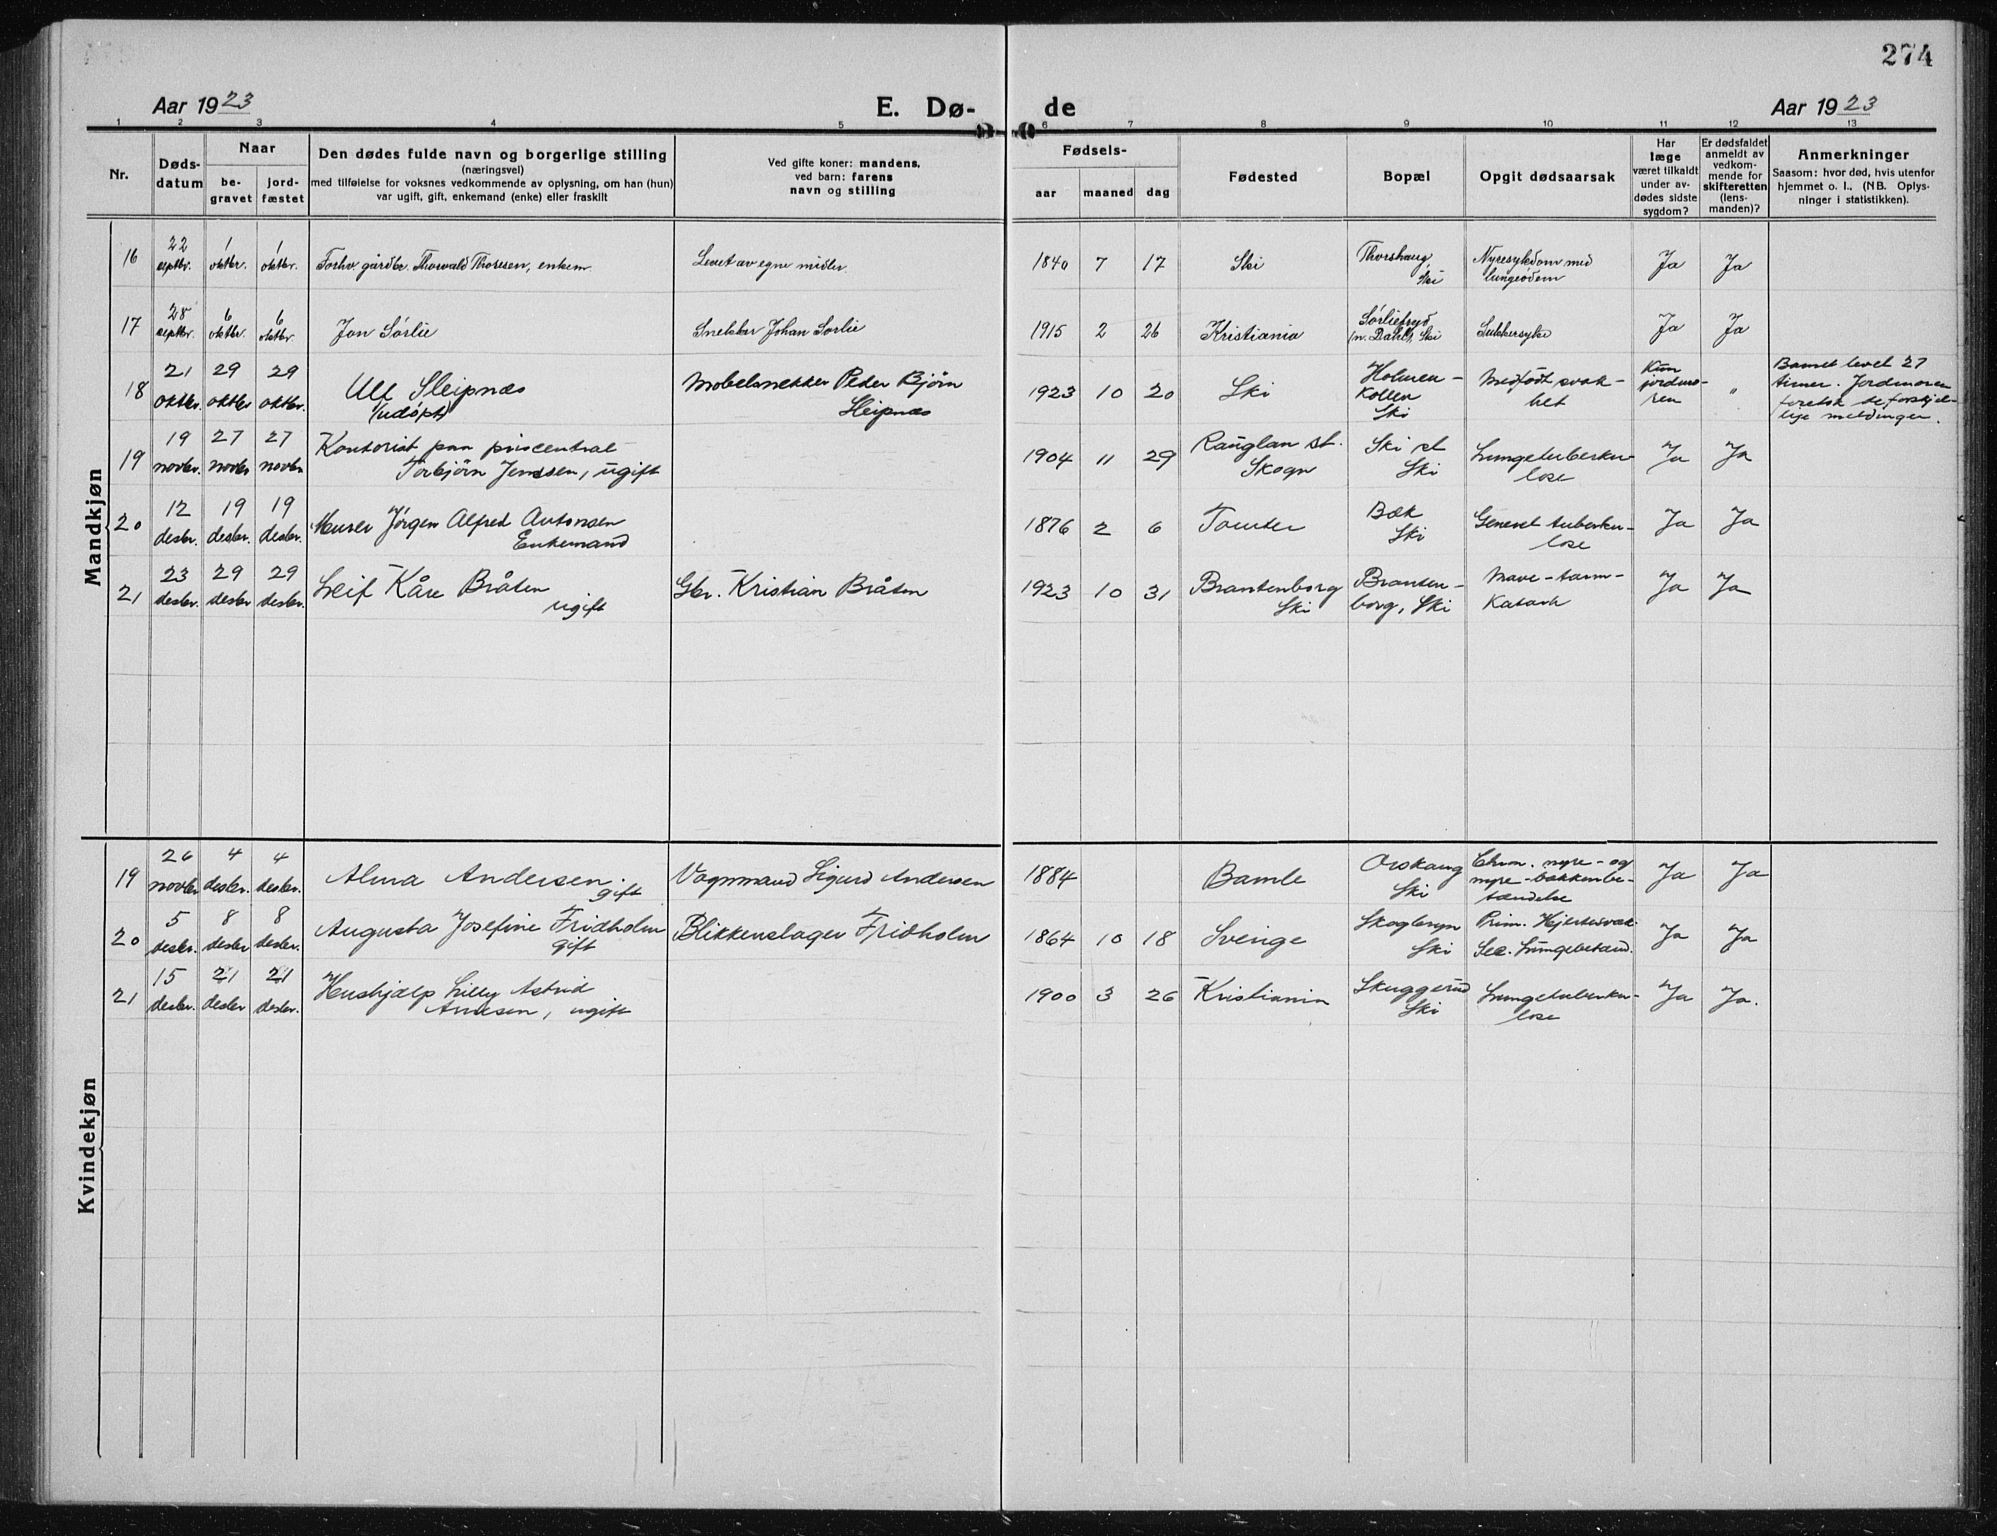 274
Aar 1923
E. Dø-
de
Aar 1923
1 2 3 4 5 6 7 8 9 10 11 12 13
Nr.
Døds-
datum
Naar
be-
gravet
jord-
fæstet
Den dødes fulde navn og borgerlige stilling
(næringsvei)
med tilføielse for voksnes vedkommende av oplysning, om han (hun)
var ugift, gift, enkemand (enke) eller fraskilt
Ved gifte koner: mandens,
ved barn: farens
navn og stilling
Fødsels-
aar
maaned
dag
Fødested
Bopæl
Opgit dødsaarsak
Har
læge
været tilkaldt
under av-
dødes sidste
sygdom?
Er dødsfaldet
anmeldt av
vedkom-
mende for
skifteretten
(lens-
manden)?
Anmerkninger
Saasom: hvor død, hvis utenfor
hjemmet o. l., (NB. Oplys-
ninger i statistikken).
Mandkjøn
16
22
septbr.
1
oktbr.
1
oktbr.
Forhv. gårdbr. Thorvald Thoresen, enkem.
Levet av egne midler.
1840 7 17
Ski
Thorshaug,
Ski
Nyresykdom med
lungeødem
Ja
Ja
17
28
septbr.
6
oktbr.
6
oktbr.
Jon Sørlie
Snekker Johan Sørlie
1915 2 26
Kristiania
Sørliefryd
(n. Dahl), Ski
Sukkersyke
Ja
Ja
18
21
oktbr.
29
oktbr.
29
oktbr.
Ulf Sleipnæs
(udøpt)
Møbelsnekker Peder Bjørn
Sleipnæs
1923 10 20
Ski
Holmen-
kollen
Ski
Medfødt svak-
het
Kun
jordmo-
ren
"
Barnet levet 27
timer. Jordmoren
foretok de forskjel-
lige meldinger.
19
19
novbr.
27
novbr.
27
novbr.
Kontorist paa priscentral
Torbjørn Jenssen, ugift
1904 11 29
Rauglan st.
Skogn
Ski st
Ski
Lungetuberku-
lose
Ja
Ja
20
12
desbr.
19
desbr.
19
desbr.
Murer Jørgen Alfred Antonsen
Enkemand
1876 2 6
Tomter
Bæk
Ski
Generel tuberku-
lose
Ja
Ja
21
23
desbr.
29
desbr.
29
desbr.
Leif Kåre Bråten
ugift
Gbr. Kristian Bråten
1923 10 31
Brantenborg
Ski
Branten-
borg, Ski
Mave-tarm-
katarh
Ja
Ja
Kvindekjøn
19
26
novbr
4
desbr.
4
desbr.
Alma Andersen
gift
Vognmand Sigurd Andersen
1884
Bamle
Orskaug
Ski
Chron. nyre- og
nyre-bækkenbe-
tændelse
Ja
Ja
20
5
desbr.
8
desbr
8
desbr.
Augusta Josefine Fridholm
gift
Blikkenslager Fridholm
1864 10 18
Sverige
Skogbryn
Ski
Prim. Hjertesvak.
Sec. Lungebetænd.
Ja
Ja
21
15
desbr.
21
desbr
21
desbr.
Hushjælp Lilly Astrid
Andresen, ugift
1900 3 26
Kristiania
Skuggerud
Ski
Lungetuberku-
lose
Ja
Ja.